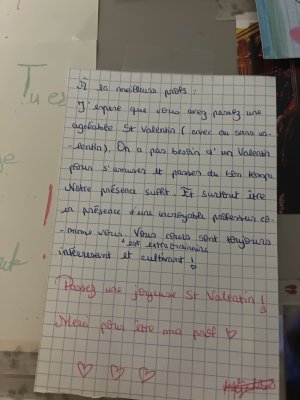 Tu es
À la meilleurs profs :
J'espère que vous avez passez une
agréable St Valentin (avec ou sans va-
-lentin). On a pas besoin d'un Valentin
pour s'amuser et passer du bon temps
Notre présence suffit. Et surtout être
en présence d'une incroyable professeur co-
-mme vous. Vous cours sont toujours
intéressent et cultivant !
Passez une joyeuse St Valentin !
Merci pour être ma prof ♡
♡ ♡ ♡